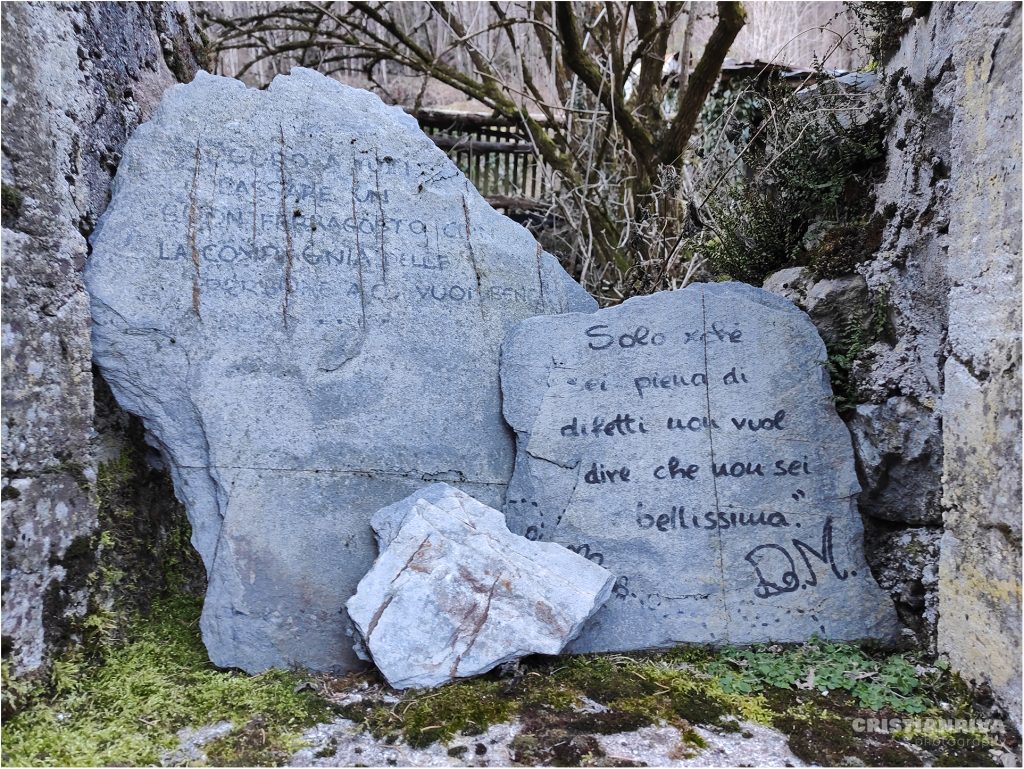 A TUTTI
PASSARE UN
BUON FERRAGOSTO CON
LA COMPAGNIA DELLE
PERSONE A CUI VUOI BENE
Solo xché
sei piena di
difetti non vuol
dire che non sei
bellissima."
D.M.
CRISTIANRIVA
photography